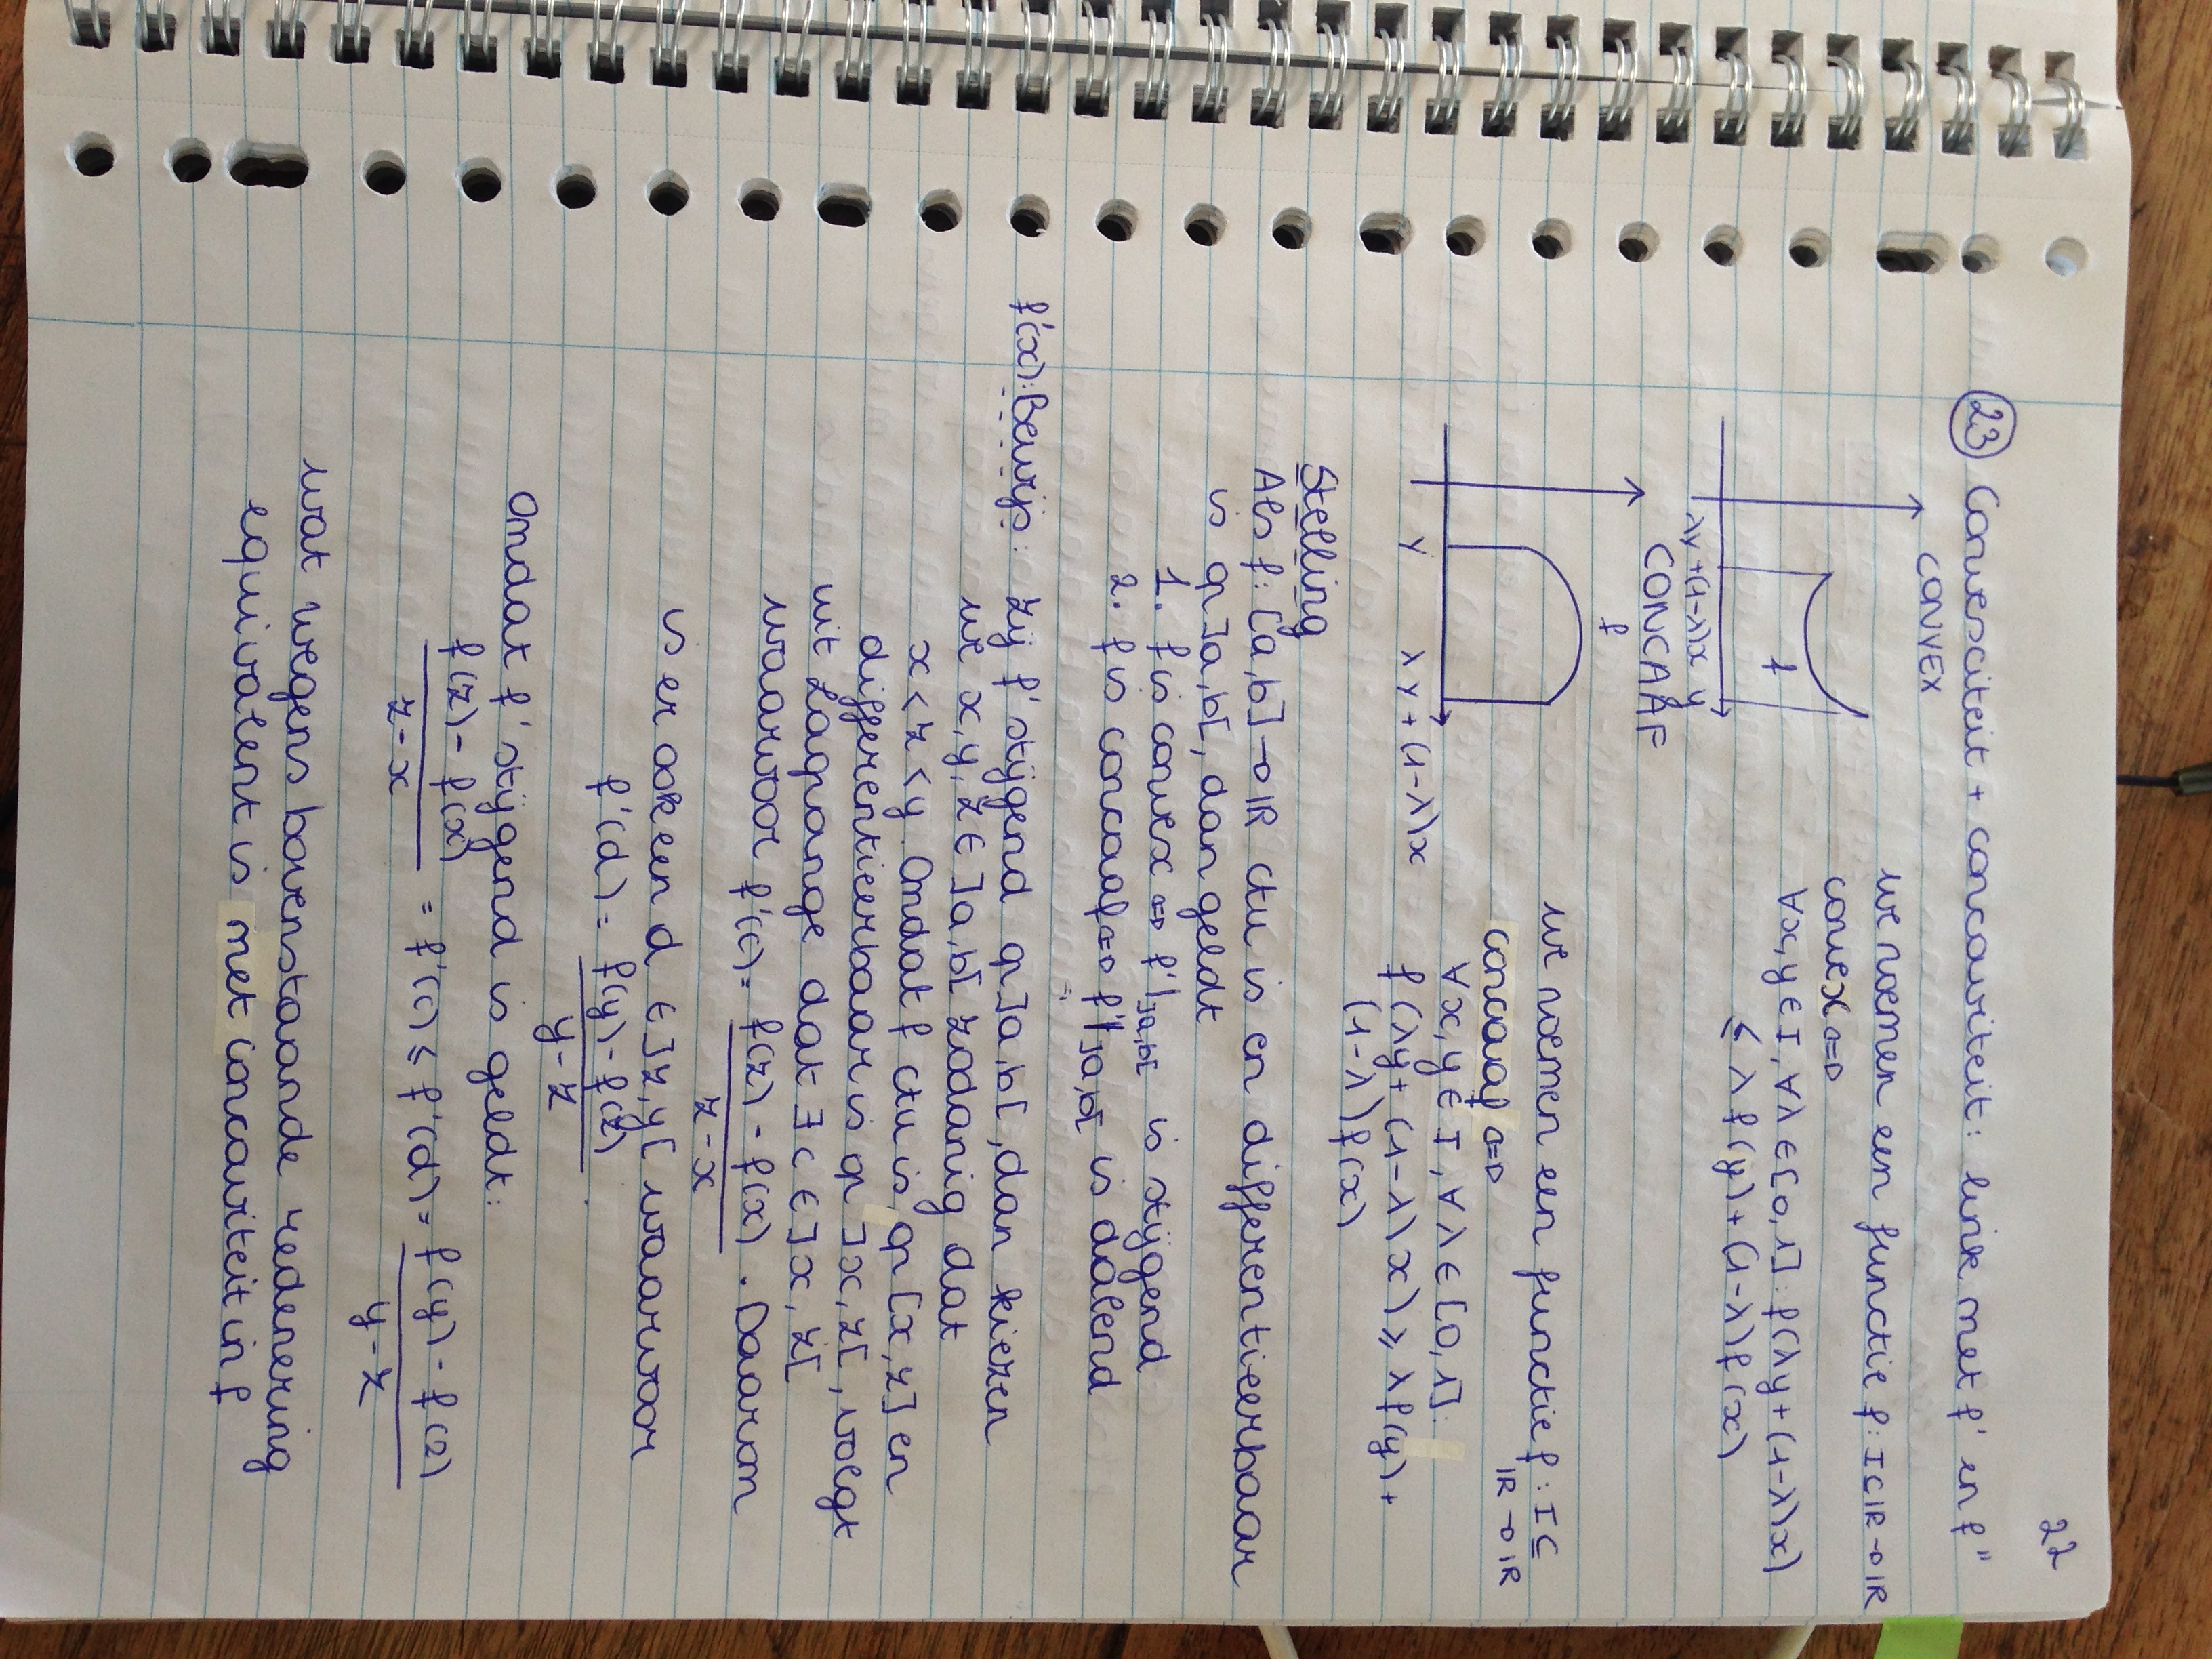 22
23 Convexciteit + concaviteit: link met f' en f"
CONVEX
we noemen een functie f: I ⊆ IR → IR
convex ⇔
∀x,y ∈ I, ∀λ ∈ [0,1]: f(λy + (1-λ)x)
≤ λ f(y) + (1-λ) f(x)
f
λy + (1-λ)x y
CONCAAF
f
we noemen een functie f: I ⊆
IR → IR
concaaf ⇔
∀x,y ∈ I, ∀λ ∈ [0,1]:
f(λy + (1-λ)x) ≥ λf(y) +
(1-λ)f(x)
y λy + (1-λ)x
Stelling
Als f: [a,b] → IR ctu is en differentieerbaar
is op ]a,b[, dan geldt
1. f is convex ⇔ f'|]a,b[ is stijgend
2. f is concaaf ⇔ f'|]a,b[ is dalend
f'(x): Bewijs: Zij f' stijgend op ]a,b[, dan kiezen
we x,y,z ∈ ]a,b[ zodanig dat
x < z < y. Omdat f ctu is op [x,z] en
differentieerbaar is op ]x,z[, volgt
uit Lagrange dat ∃ c ∈ ]x,z[
waarvoor f'(c) = (f(z) - f(x))/(z - x). Daarom
is er ook een d ∈ ]z,y[ waarvoor
f'(d) = (f(y) - f(z))/(y - z).
Omdat f' stijgend is geldt:
(f(z) - f(x))/(z - x) = f'(c) ≤ f'(d) = (f(y) - f(z))/(y - z)
wat wegens bovenstaande redenering
equivalent is met concaviteit in f